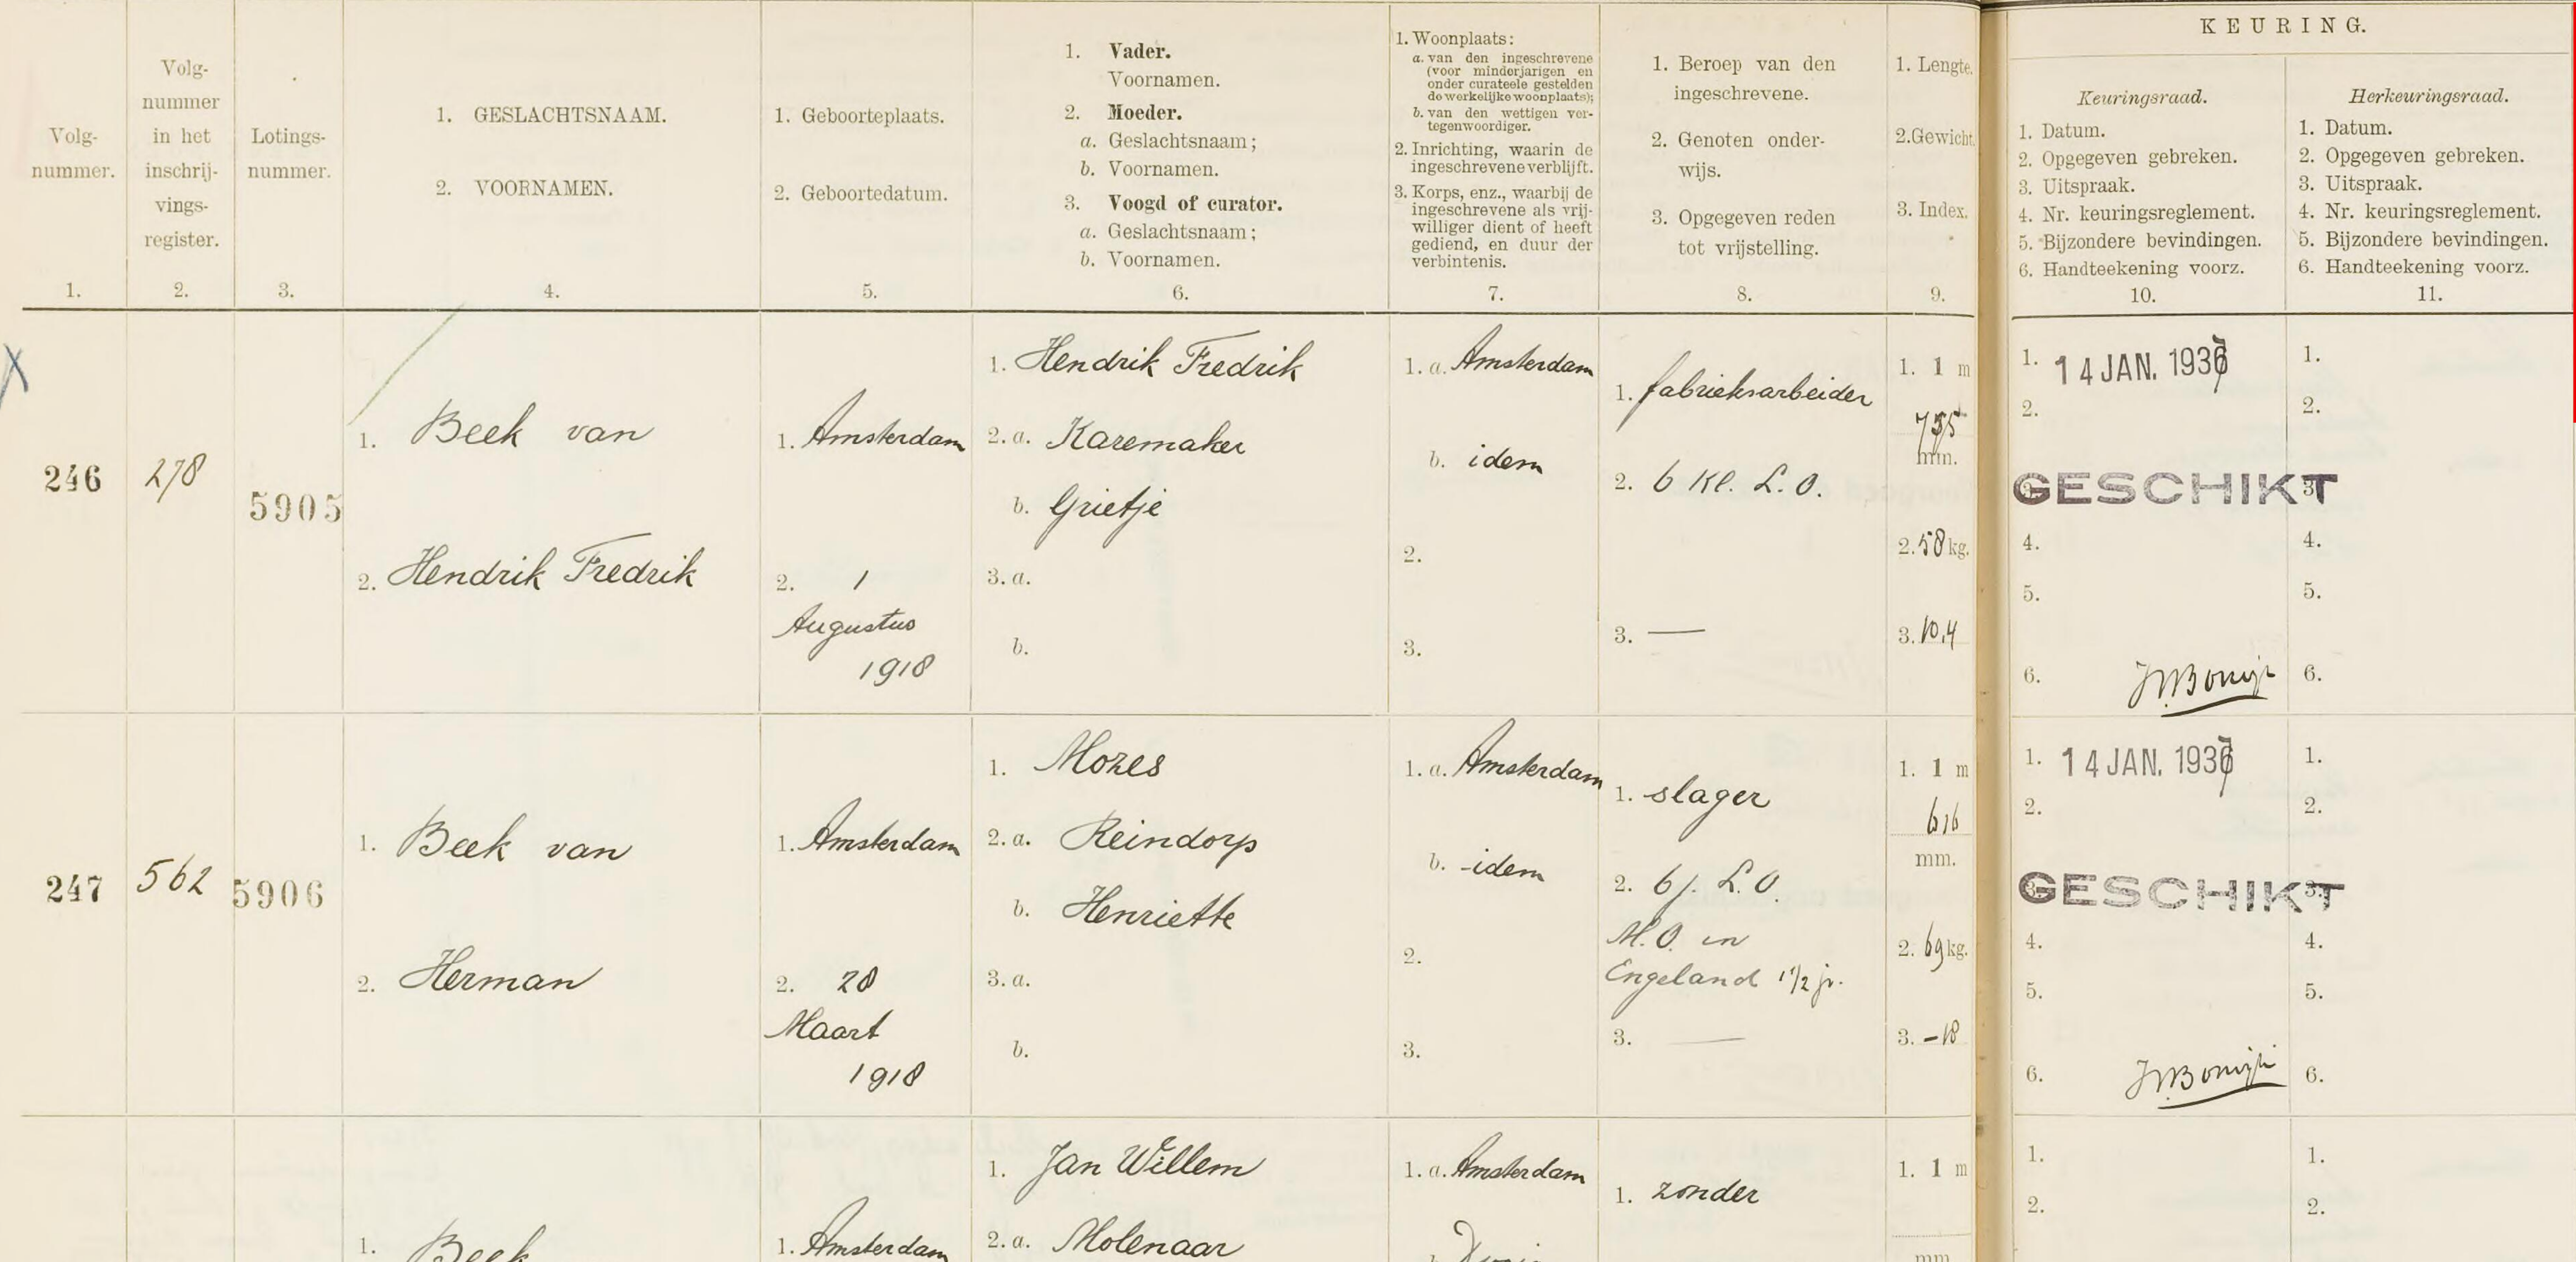 KEURING.
Volg-
nummer.
1.
Volg-
nummer
in het
inschrij-
vings-
register.
2.
Lotings-
nummer.
3.
1. GESLACHTSNAAM.
2. VOORNAMEN.
4.
1. Geboorteplaats.
2. Geboortedatum.
5.
1. Vader.
Voornamen.
2. Moeder.
a. Geslachtsnaam;
b. Voornamen.
3. Voogd of curator.
a. Geslachtsnaam;
b. Voornamen.
6.
1. Woonplaats:
a. van den ingeschrevene
(voor minderjarigen en
onder curateele gestelden
de werkelijke woonplaats);
b. van den wettigen ver-
tegenwoordiger.
2. Inrichting, waarin de
ingeschrevene verblijft.
3. Korps, enz., waarbij de
ingeschrevene als vrij-
williger dient of heeft
gediend, en duur der
verbintenis.
7.
1. Beroep van den
ingeschrevene.
2. Genoten onder-
wijs.
3. Opgegeven reden
tot vrijstelling.
8.
1. Lengte.
2. Gewicht.
3. Index.
9.
Keuringsraad.
1. Datum.
2. Opgegeven gebreken.
3. Uitspraak.
4. Nr. keuringsreglement.
5. Bijzondere bevindingen.
6. Handteekening voorz.
10.
Herkeuringsraad.
1. Datum.
2. Opgegeven gebreken.
3. Uitspraak.
4. Nr. keuringsreglement.
5. Bijzondere bevindingen.
6. Handteekening voorz.
11.
X
246
278
5905
1. Beek van
2. Hendrik Fredrik
1. Amsterdam
2. 1
Augustus
1918
1. Hendrik Fredrik
2. a. Karemaker
b. Grietje
3. a.
b.
1. a. Amsterdam
b. idem
2.
3.
1. fabrieksarbeider
2. 6 Kl. L.O.
3. —
1. 1 m
mm.
2. 58 kg.
3. 10,4
1. 14 JAN. 1937
2.
GESCHIKT
4.
5.
6.
1.
2.
3.
4.
5.
6.
247
562
5906
1. Beek van
2. Herman
1. Amsterdam
2. 28
Maart
1918
1. Mozes
2. a. Reindorp
b. Henriette
3. a.
b.
1. a. Amsterdam
b. idem
2.
3.
1. slager
2. 6 j. L.O.
M.O. in
Engeland 1 1/2 jr.
3. —
1. 1 m
616
mm.
2. 69 kg.
3. -18
1. 14 JAN. 1937
2.
3. GESCHIKT
4.
5.
6.
1.
2.
3.
4.
5.
6.
1. Beek
1. Amsterdam
1. Jan Willem
2. a. Molenaar
1. a. Amsterdam
1. zonder
1. 1 m
mm
1.
2.
1.
2.